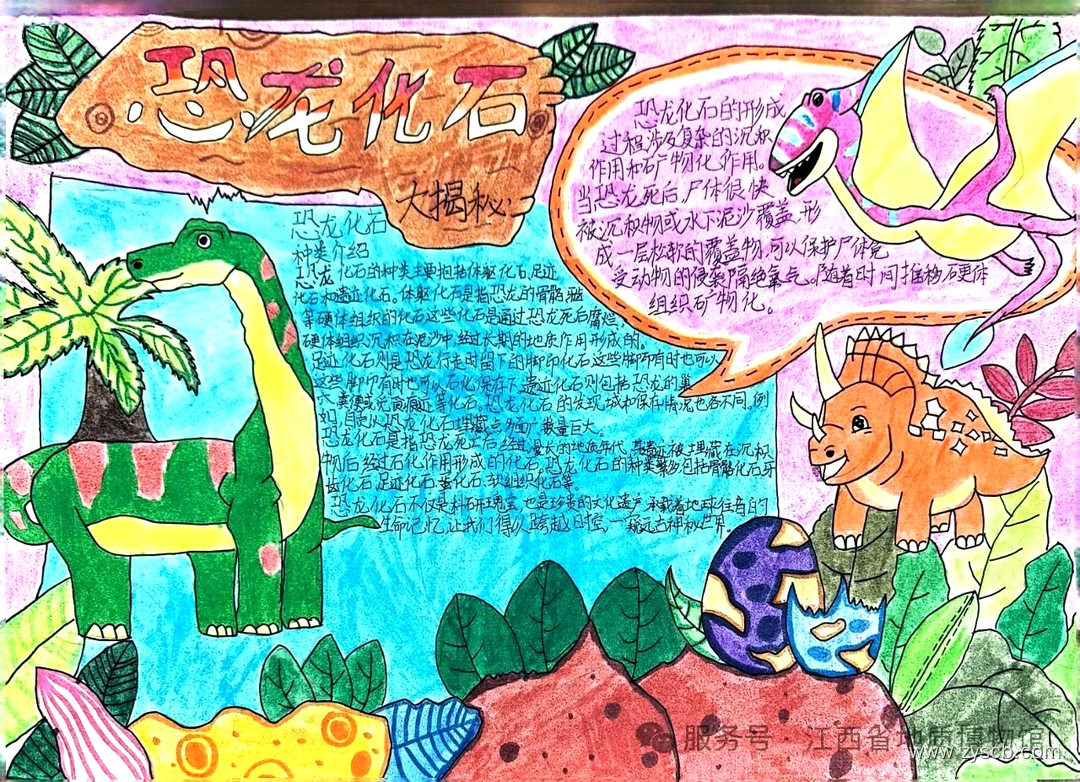 恐龙化石
大揭秘
恐龙化石的形成
过程涉及复杂的沉积
作用和矿物化作用。
当恐龙死后尸体很快
被沉积物或水下泥沙覆盖,形
成一层松软的覆盖物,可以保护尸体免
受动物的侵袭隔绝氧气。随着时间推移硬体
组织矿物化。
恐龙化石
种类介绍
恐龙化石的种类主要包括体躯化石,足迹
化石和遗迹化石。体躯化石是指恐龙的骨骼
等硬体组织的化石这些化石是通过恐龙死后腐烂,
硬体组织沉积在泥沙中,经过长期的地质作用形成的。
足迹化石则是恐龙行走时留下的脚印化石这些脚印有时也可以
这些脚印有时也可以石化保存下。遗迹化石则包括恐龙的巢
穴粪便或觅食痕迹等化石。恐龙化石的发现 和保存情况也各不同。例
如 恐龙化石埋藏 广数量巨大。
恐龙化石是指恐龙死亡后经过漫长的地质年代,其遗迹被埋藏在沉积
物后经过石化作用形成的化石。恐龙化石的种类繁多包括骨骼化石牙
齿化石,足迹化石,粪化石,软组织化石等。
恐龙化石不仅是科研瑰宝,也是珍贵的文化遗产承载着地球往昔的
生命记忆,让我们得以跨越时空,一窥远古神秘世界。
服务号 · 江西省地质博物馆
www.zyscb.com